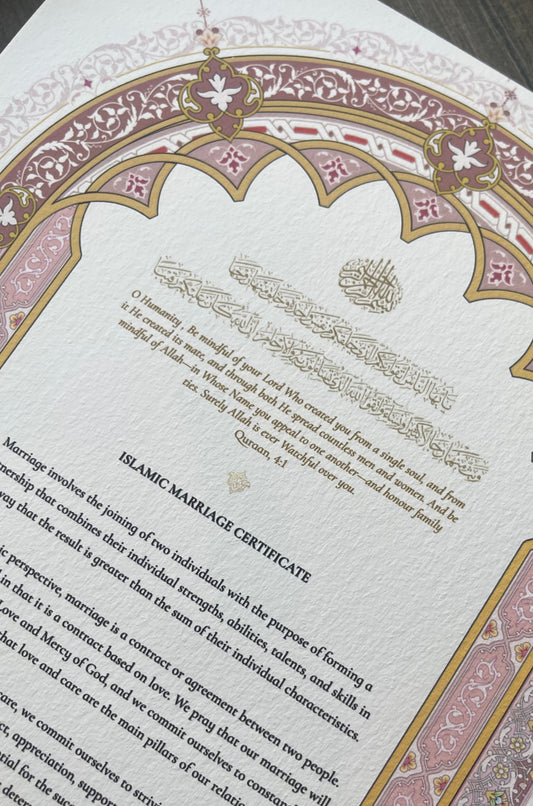 يا أيها الناس اتقوا ربكم الذي خلقكم من نفس واحدة وخلق منها زوجها وبث
منهما رجالا كثيرا ونساء واتقوا الله الذي تساءلون به والأرحام إن الله كان عليكم رقيبا
O Humanity , Be mindful of your Lord Who created you from a single soul, and from
it He created its mate, and through both He spread countless men and women. And be
mindful of Allah—in Whose Name you appeal to one another—and honour family
ties. Surely Allah is ever Watchful over you.
Quraan, 4:1
ISLAMIC MARRIAGE CERTIFICATE
Marriage involves the joining of two individuals with the purpose of forming a
nership that combines their individual strengths, abilities, talents, and skills in
way that the result is greater than the sum of their individual characteristics.
ic perspective, marriage is a contract or agreement between two people.
in that it is a contract based on love. We pray that our marriage will
Love and Mercy of God, and we commit ourselves to constan
that love and care are the main pillars of our relatio
care, we commit ourselves to strivi
ct, appreciation, suppor
ntial for the suc
determ